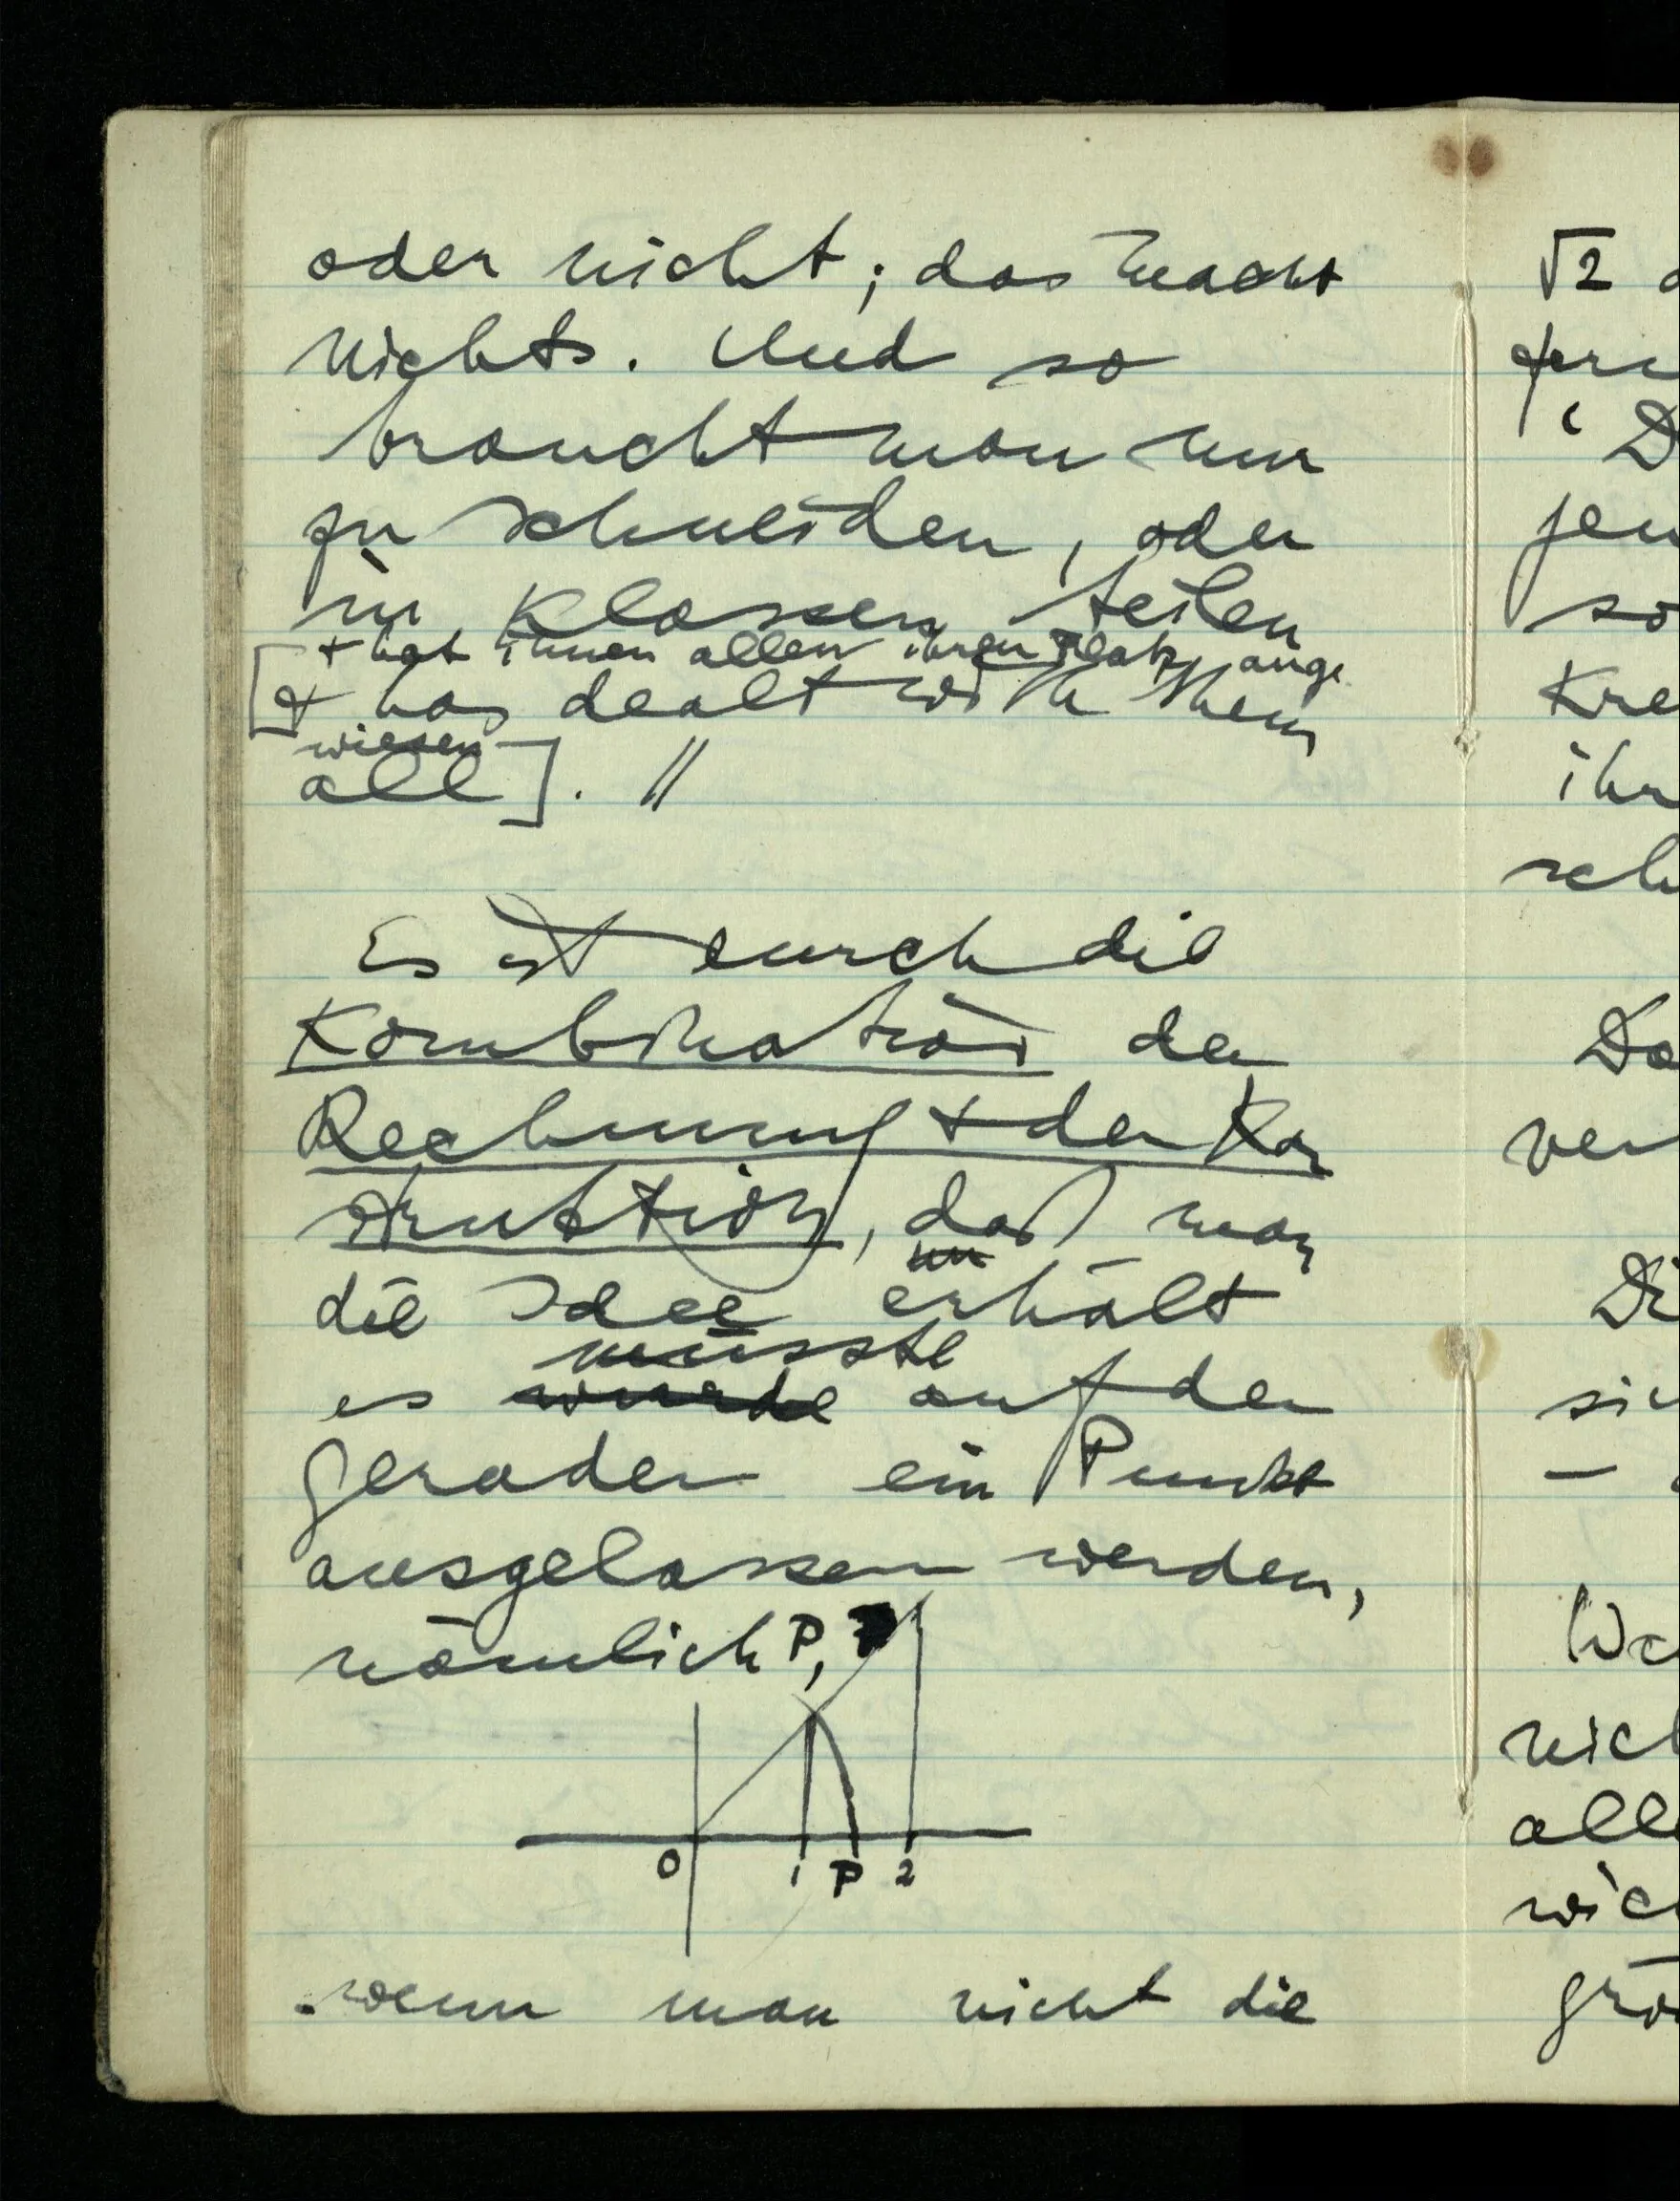 oder nicht; das macht
nichts. Und so
braucht man nur
zu schneiden, oder
in Klassen teilen
+ hat ihnen allen ihren Platz ange
[& has dealt with them
wiesen
all]. //
Es ist durch die
Kombination der
Rechnung + der Kon
struktion, daß man
die Idee erhält
müsste
es wurde auf der
Geraden ein Punkt
ausgelassen werden,
nämlich P,
0 1 P 2
wenn man nicht die
√2
D
jen
so
Kre
ihr
sch
Da
ver
Di
sic
–
We
nich
alle
wic
grö